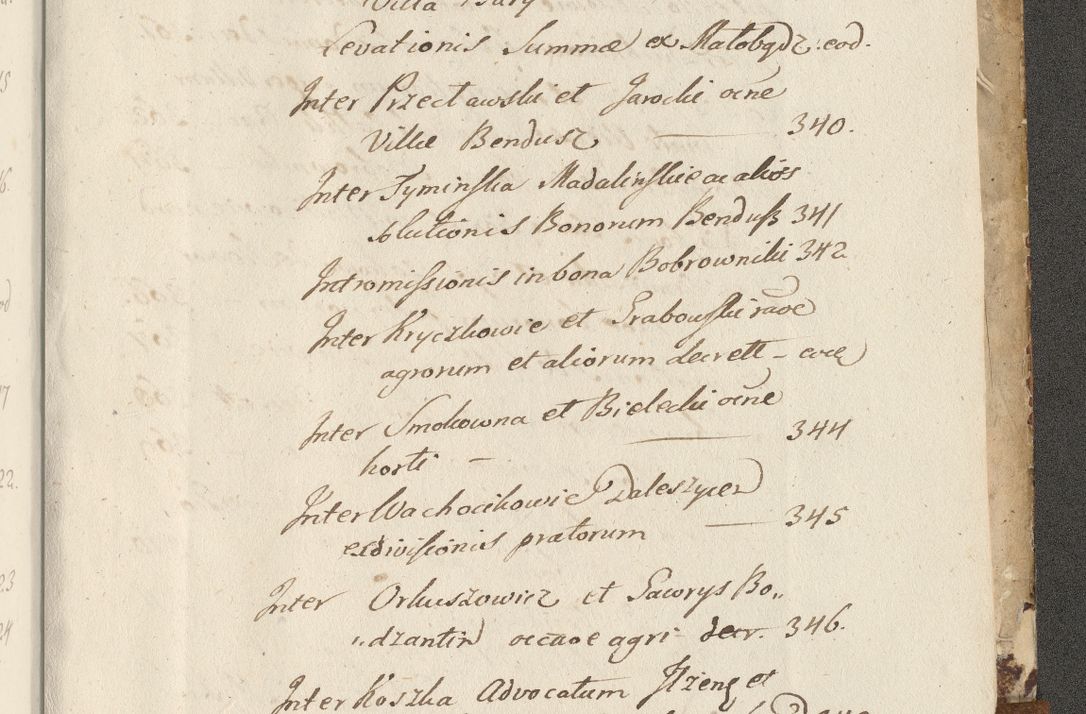 Villa Bary
Levationis Summæ ex Małobądz. eod.
Inter Przecławski et Jarocki oĉne
Villæ Bendusz 340.
Inter Tyminska Madalinskie ac alios
solutionis Bonorum Benduß 341
Intromissionis in bona Bobrowniki 342
Inter Kryczkowie et Grabowski raoe
agrorum et aliorum decrett
Inter Smokowna et Bielecki oĉne
horti 344
Inter Wachocikowie
exdivisionis pratorum 345
Inter Orkuszowicz et Gawrys Bo,,
,,dzantin occaoe agri decr. 346.
Inter Koszka Advocatum Ilzens et